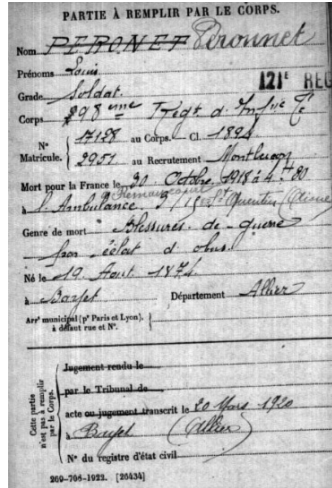 PARTIE À REMPLIR PAR LE CORPS.
Nom PERONET Peronnet
Prénoms Louis
Grade Soldat
121E REG
Corps 298 ème Régt d' Infrie
N° Matricule. 17128 au Corps. Cl. 1894
2951 au Recrutement Montluçon
Mort pour la France le 30 Octobre 1918 à 4 H 30
à l'Ambulance St Quentin (Aisne)
Genre de mort Blessures de guerre
par éclat d'obus
Né le 19 Août 1874
à Bayet Département Allier
Arrt municipal (pr Paris et Lyon),
à défaut rue et N°.
Cette partie n'est pas à remplir par le Corps.
Jugement rendu le
par le Tribunal de
acte ou jugement transcrit le 20 Mars 1920
à Bayet (Allier)
N° du registre d'état civil
269-708-1922. [26434]